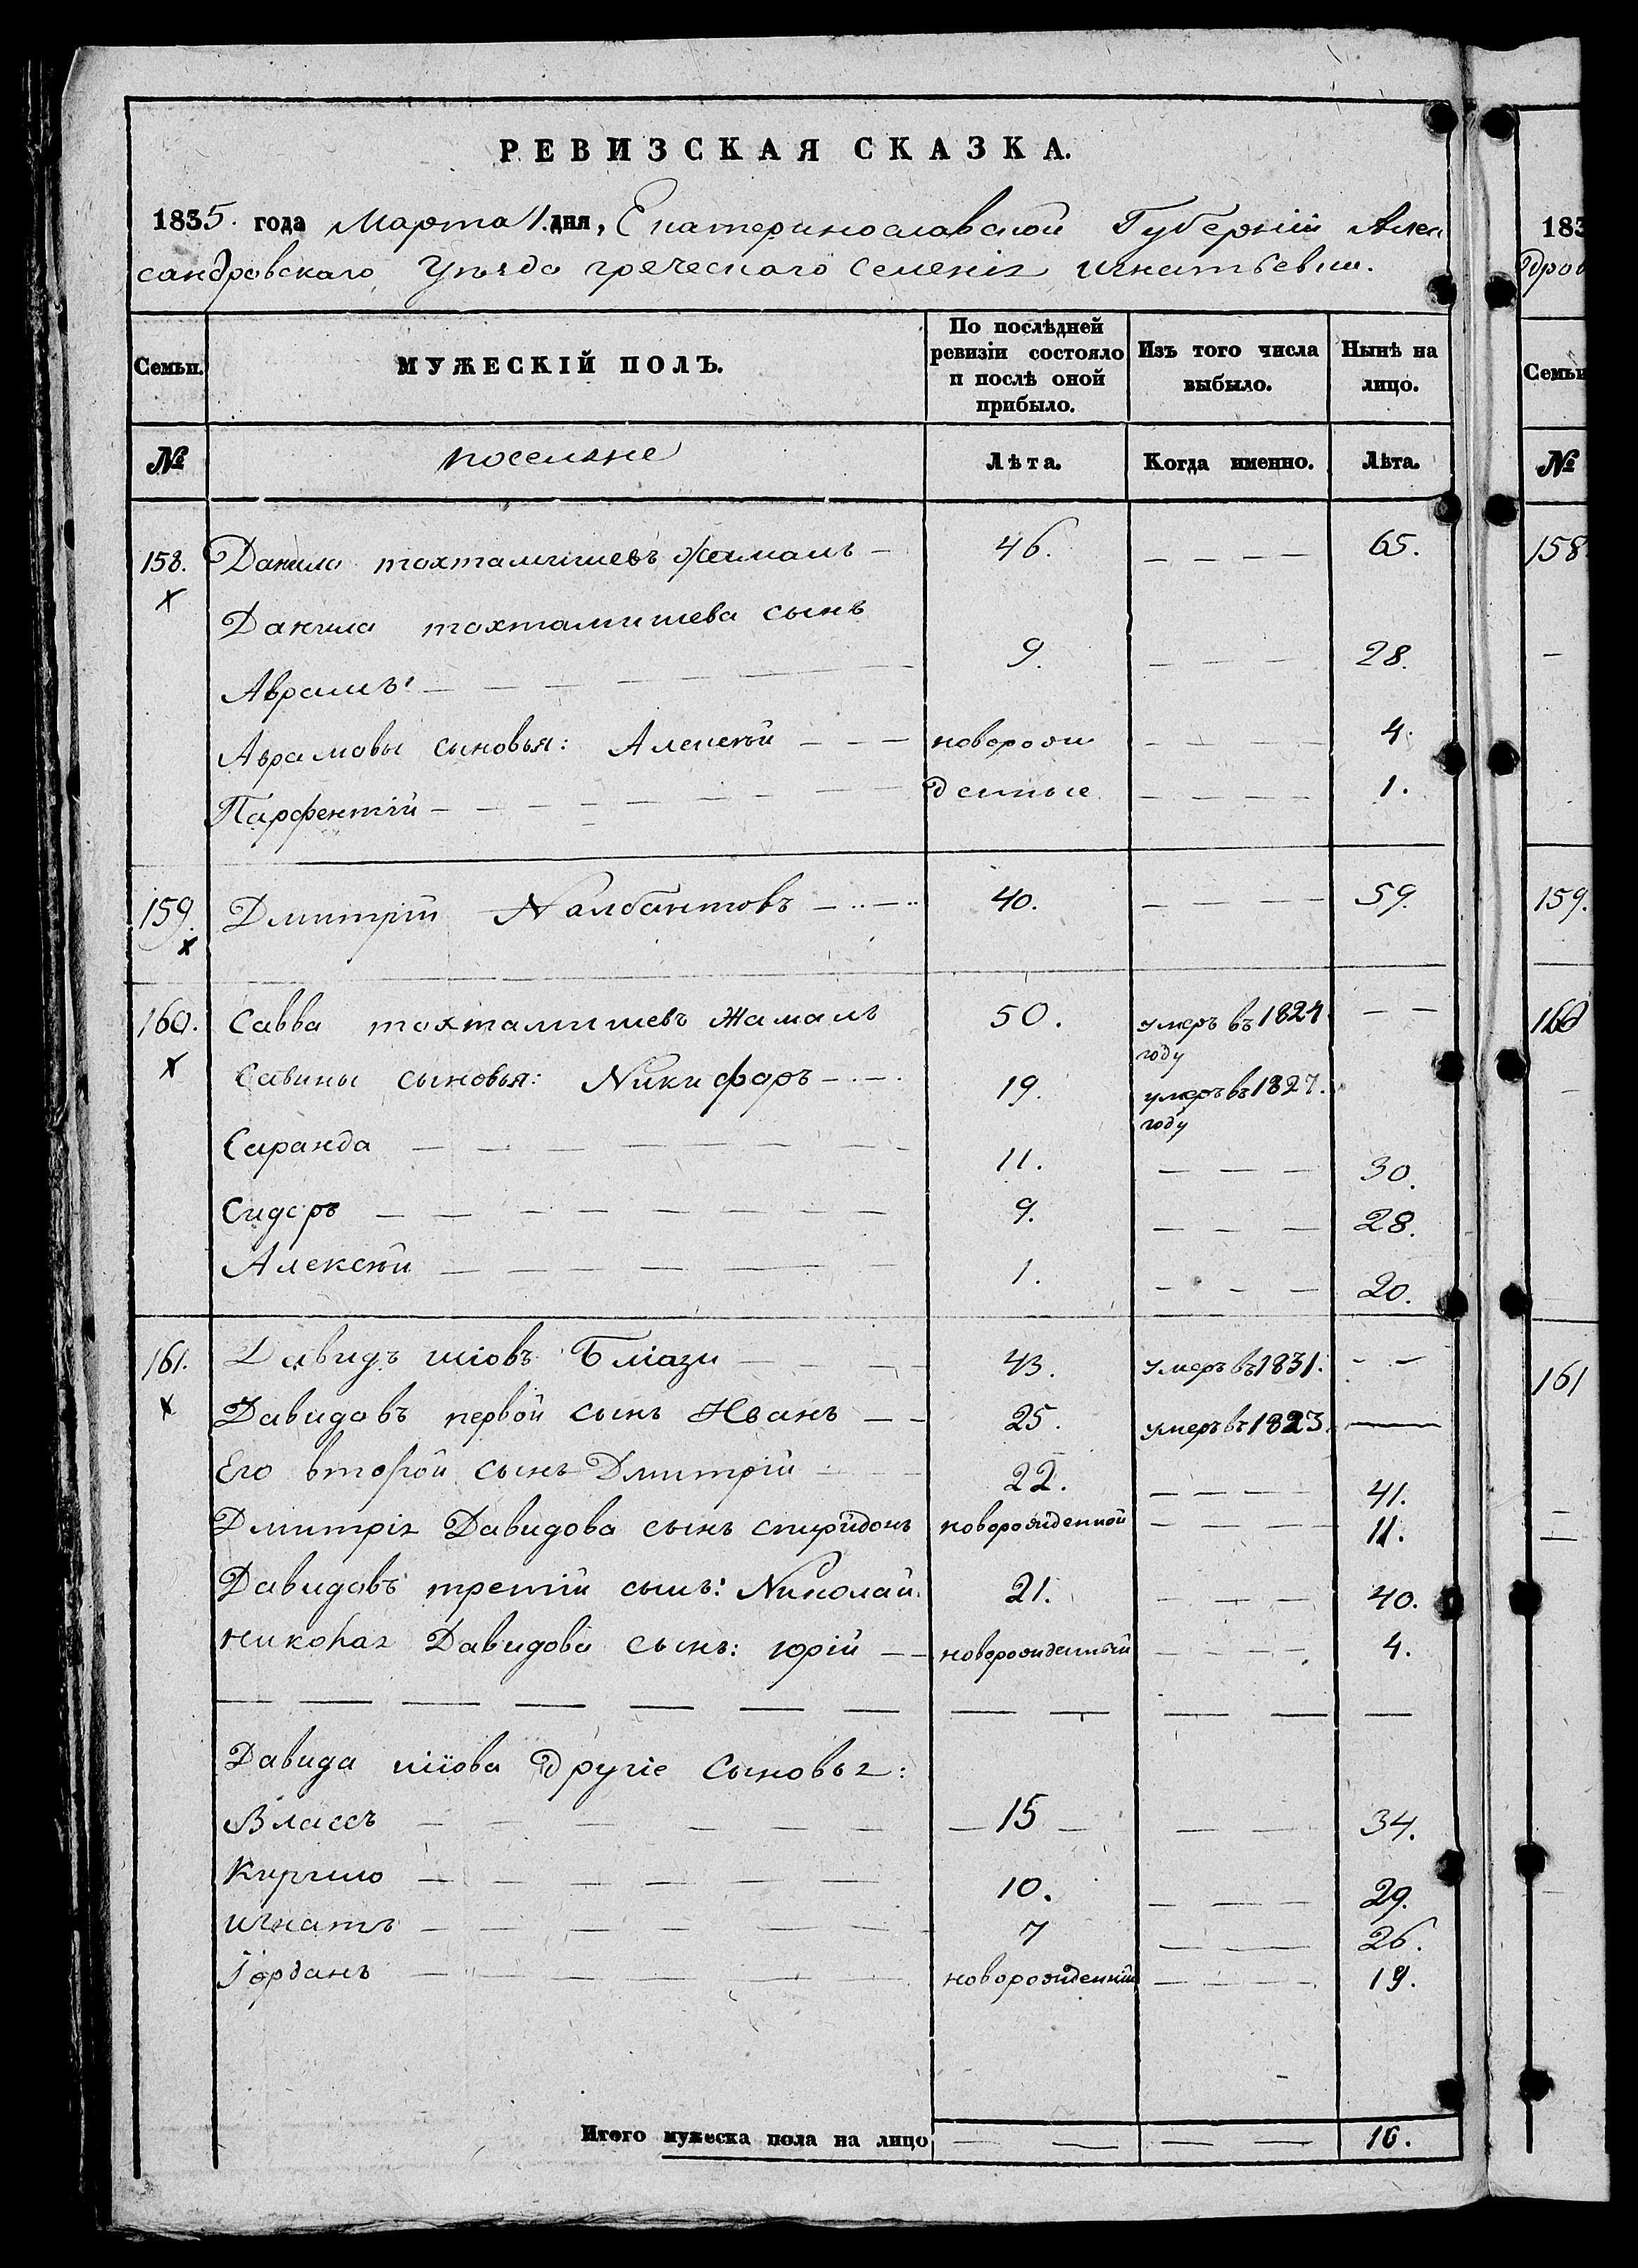 РЕВИЗСКАЯ СКАЗКА.
1835. года Марта 1. дня, Екатеринославской Губернии Алек
сандровскаго Уѣзда греческаго селенія Игнатьевки.
Семьи.
МУЖЕСКІЙ ПОЛЪ.
По послѣдней ревизіи состояло и послѣ оной прибыло.
Изъ того числа выбыло.
Нынѣ на лицо.
№
поселяне
Лѣта.
Когда именно.
Лѣта.
158. Данило тохтамишевъ Жамалъ — 46. — — — — 65.
х
Данила тохтамишева сынъ
Аврамъ: — — — — 9. — — — 28.
Аврамовы сыновья: Алексѣй — — — новорож — — — — 4.
Парфентій — — — — денные — — — — 1.
159. Дмитрій Налбантовъ — 40. — — — — 59.
х
160. Савва тохтамишевъ Жамалъ 50. умеръ въ 1824 — —
году
х
Савины сыновья: Никифоръ — 19. умеръ въ 1827.
году
Саранда — — — — 11. — — — 30.
Сидоръ — — — — 9. — — — 28.
Алексѣй — — — — 1. — — — 20.
161. Давидъ шіовъ Бліази — 43. умеръ въ 1831. — —
х
Давидовъ первой сынъ Иванъ — — 25. умеръ въ 1823. —
Его второй сынъ Дмитрій — 22. — — — — 41.
Дмитрія Давидова сынъ спиридонъ новорожденной — — — — 11.
Давидовъ третій сынъ: Николай. 21. — — — 40.
николая Давидова сынъ: юрій — — новорожденный — — — — 4.
Давида шіова Другіе Сыновья:
Влассъ — — — — — 15 — — — 34.
Кирило — — — — 10. — — — 29.
игнатъ — — — — 7 — — 26.
Іорданъ — — — — новорожденній — — — — 19.
Итого мужеска пола на лицо — — — — 16.
183
дров
Семьи
№
158
159.
160
161